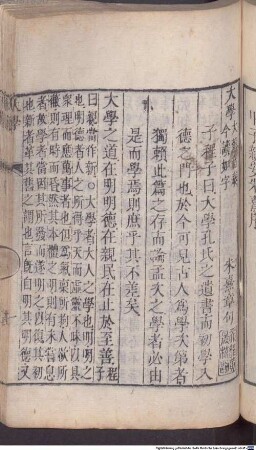 大學
大舊音泰今讀如字
朱熹章句
子程子曰大學孔氏之遺書而初學入
德之門也於今可見古人爲學次第者
獨賴此篇之存而論孟次之學者必由
是而學焉則庶乎其不差矣
大學之道在明明德在親民在止於至善程子
曰親當作新○大學者大人之學也明明之
也明德者人之所得乎天而虛靈不昧以具
衆理而應萬事者也但爲氣稟所拘人欲所
蔽則有時而昏然其本體之明則有未嘗息
者故學者當因其所發而遂明之以復其初
也新者革其舊之謂也言旣自明其明德又